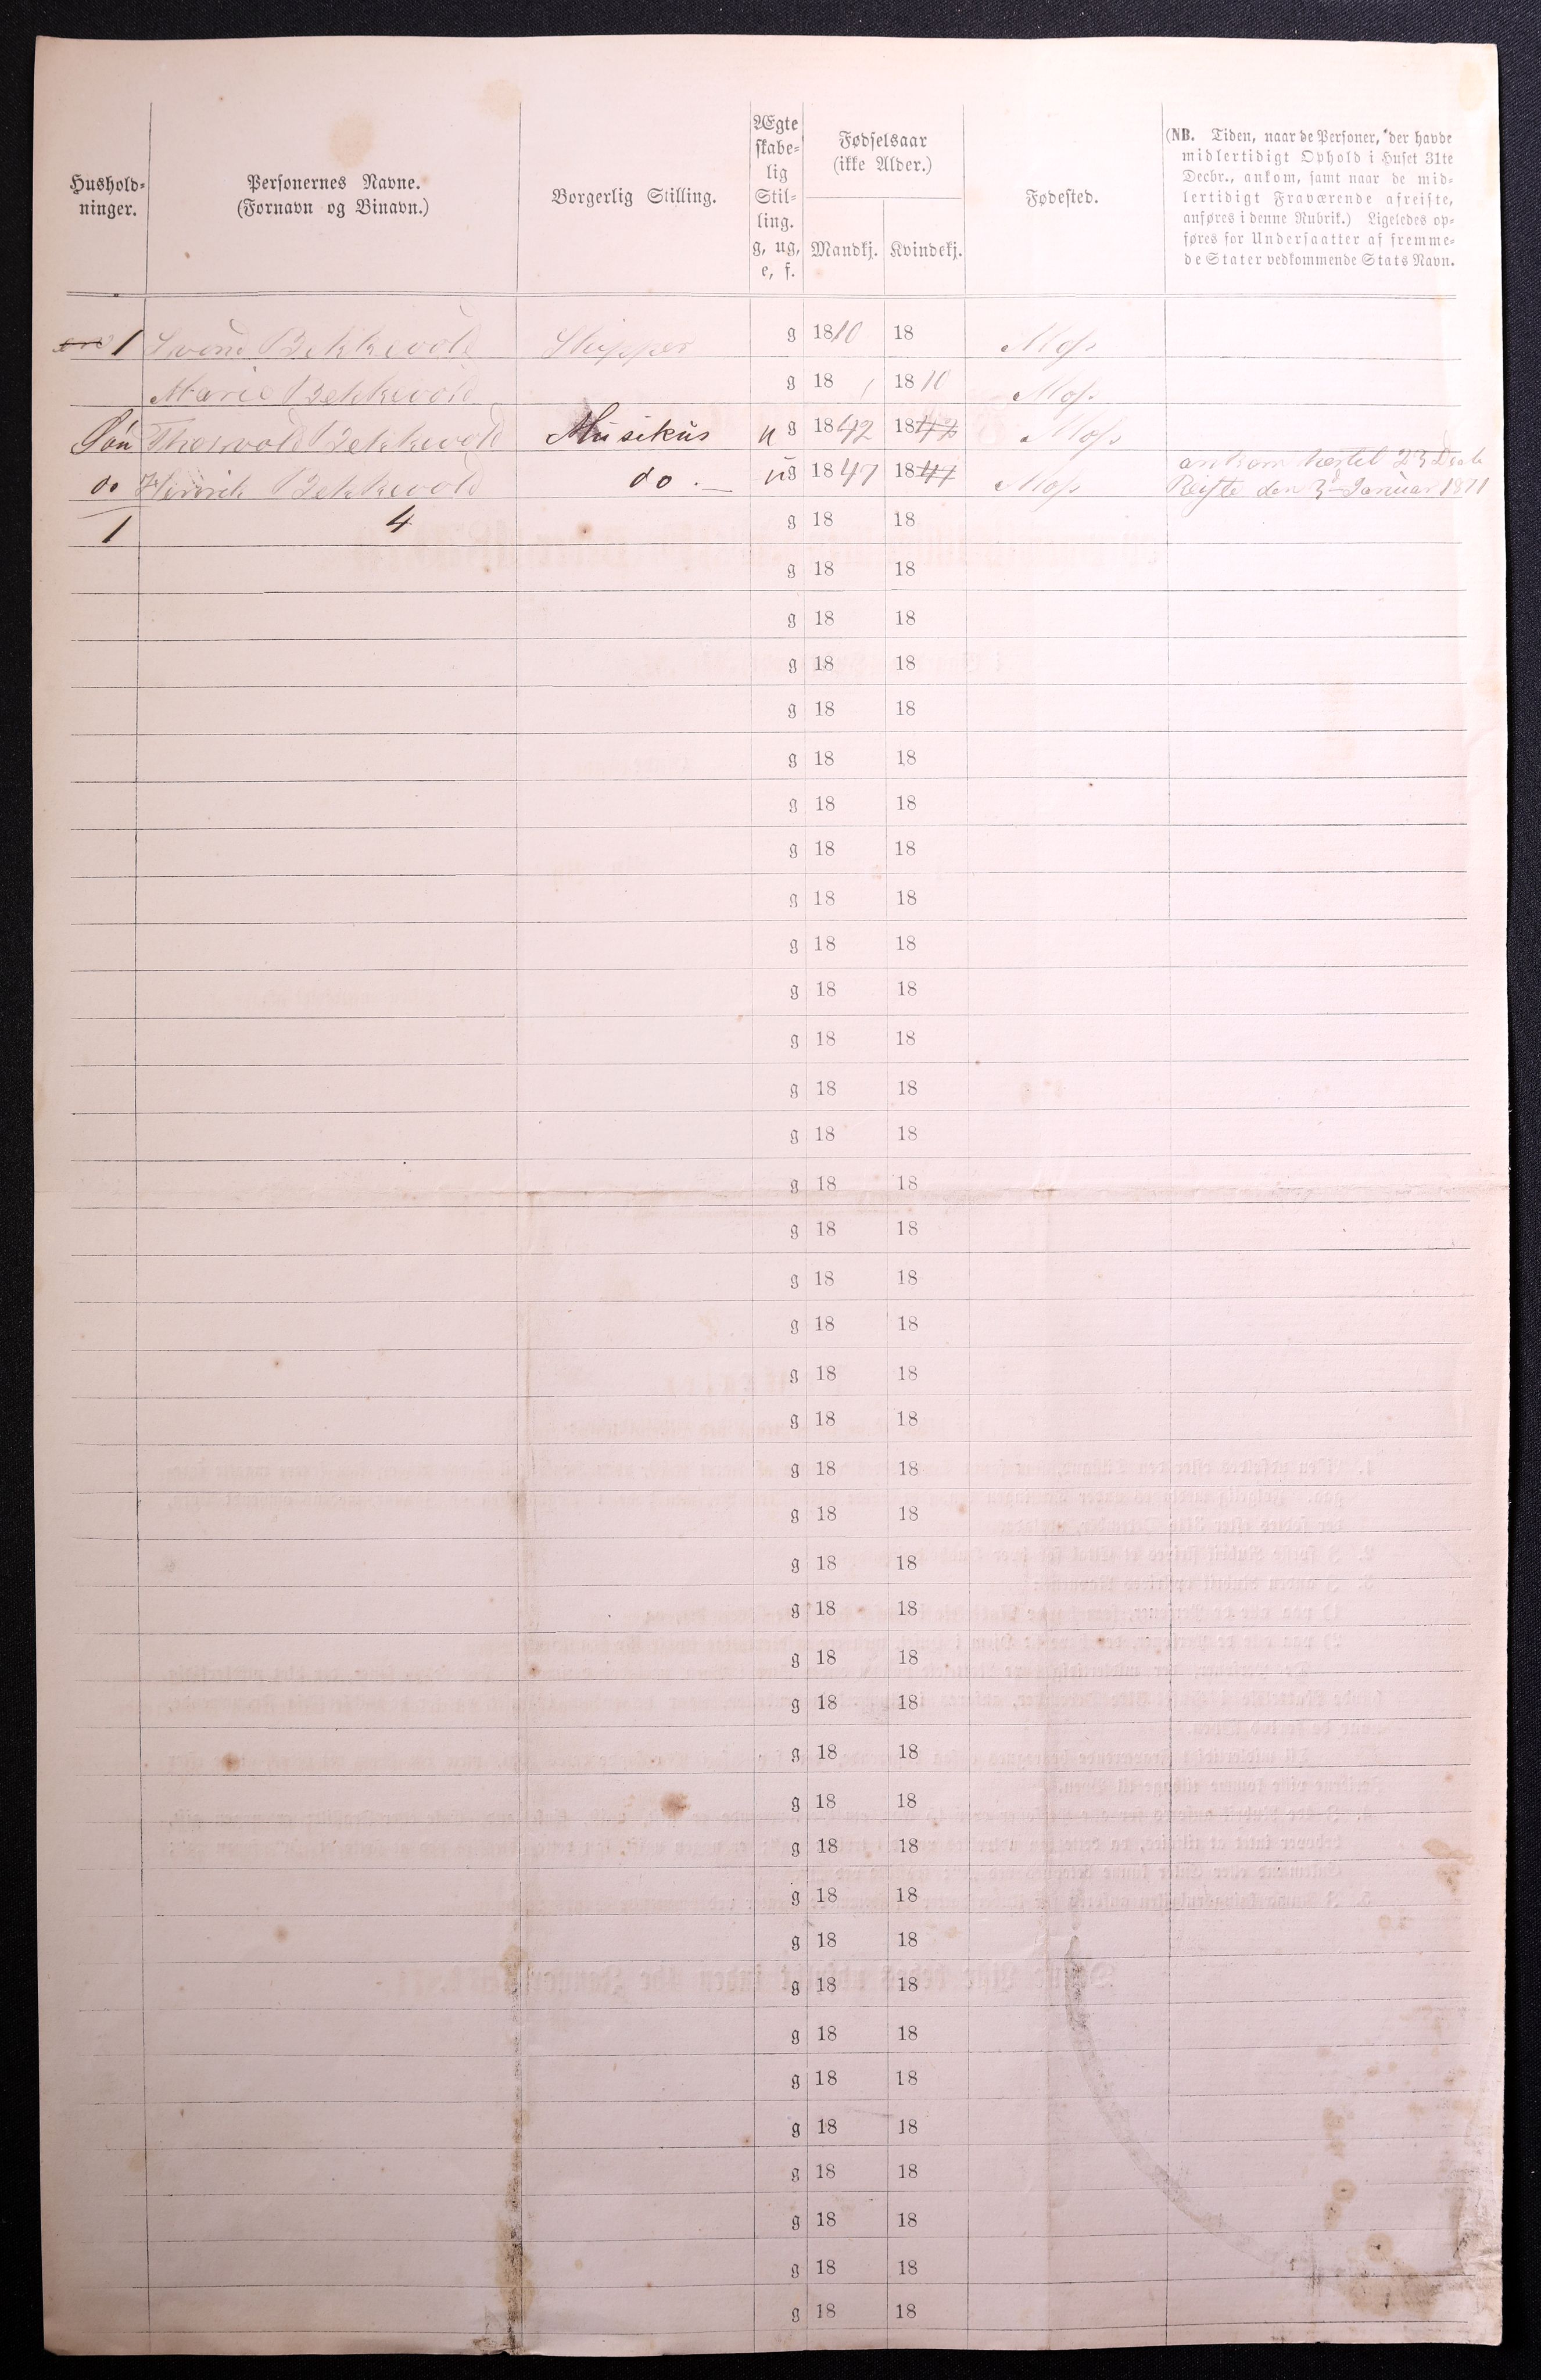 Hushold-
ninger.
Personernes Navne.
(Fornavn og Binavn.)
Borgerlig Stilling.
Ægte
skabe-
lig
Stil-
ling.
g, ug,
e, f.
Fødselsaar
(ikke Alder.)
Mandkj.
Kvindekj.
Fødested.
(NB. Tiden, naar de Personer, der havde
midlertidigt Ophold i Huset 31te
Decbr., ankom, samt naar de mid-
lertidigt Fraværende afreiste,
anføres i denne Rubrik.) Ligeledes op-
føres for Undersaatter af fremme-
de Stater vedkommende Stats Navn.
1 Svend Bekkevold Skipper g 1810 18 Moss
Marie Bekkevold g 18 1810 Moss
Søn Thorvald Bekkevold Musikus ug 1842 1842 Moss
do Henrik Bekkevold do. ug 1847 1847 Moss ankom 23 Decb
Reiste den 3 Januar 1871
1 4 g 18 18
g 18 18
g 18 18
g 18 18
g 18 18
g 18 18
g 18 18
g 18 18
g 18 18
g 18 18
g 18 18
g 18 18
g 18 18
g 18 18
g 18 18
g 18 18
g 18 18
g 18 18
g 18 18
g 18 18
g 18 18
g 18 18
g 18 18
g 18 18
g 18 18
g 18 18
g 18 18
g 18 18
g 18 18
g 18 18
g 18 18
g 18 18
g 18 18
g 18 18
g 18 18
g 18 18
g 18 18
g 18 18
g 18 18